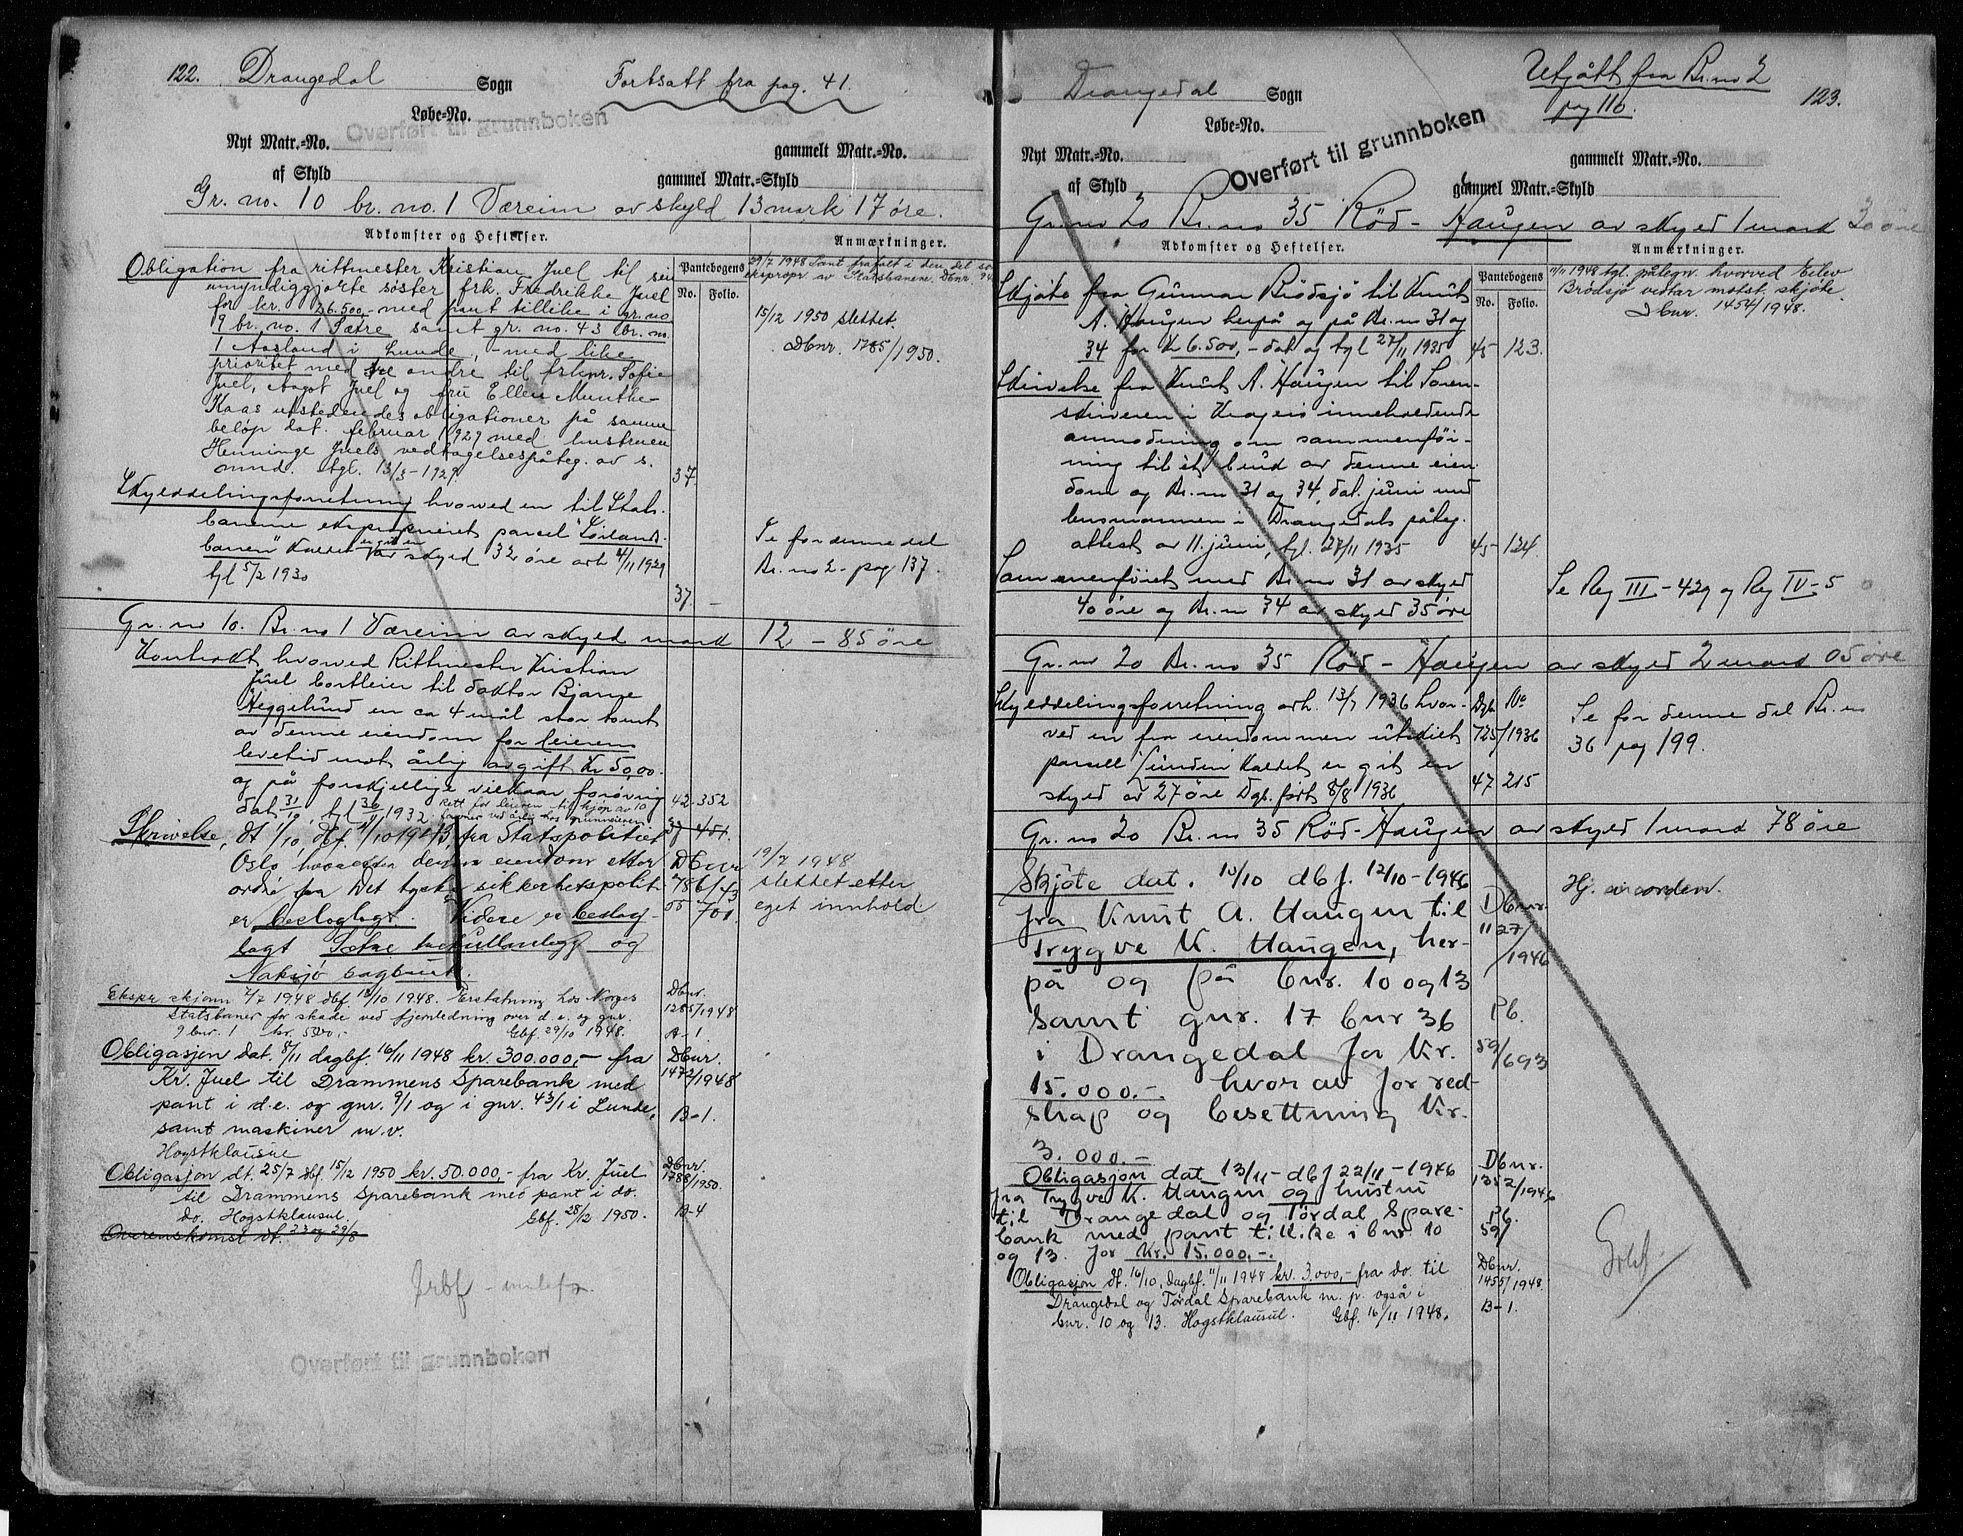 122. Drangedal Sogn Fortsatt fra pag. 41.
Løbe-No.
Overført til grunnboken
Nyt Matr.-No. gammelt Matr.-No.
af Skyld gammel Matr.-Skyld
Gr. no. 10 br. no. 1 Væreim av skyld 13 mark 17 øre.
Adkomster og Heftelser. Pantebogens No. Folio. Anmærkninger.
Obligation fra rittmester Kristian Juel til sin
umyndiggjorte søster frk. Fredrikke Juel
for kr. 26.500,- med pant tillike i gr. no
9 br. no. 1 Sætre samt gr. no. 43 br. no.
1 Aasland i Lunde, - med like
prioritet med tre andre til frknr. Sofie
Juel, Aagot Juel og fru Ellen Munthe-
Kaas utstedendes obligationer på samme
beløp dat. februar 1929 med hustruen
Henninge Juels vedtagelsespåteg. av s.
mnd. tgl. 13/3-1929. 37.
29/7 1948 Pant frafalt i den del som
ekspropr. av Statsbanene. Dbnr. 94
15/12 1950 slettet.
Dbnr. 1785/1950.
Skylddelingsforretning hvorved en til Stats-
banerne ekspropriert parcel "Sørlands-
banen" kaldet er git en skyld 32 øre avh 4/11 1929
tgl 5/2 1930 37. -
Se for denne del
Br. no 2 - pag 137.
Gr. no 10. Br. no 1 Væreim av skyld mark 12 - 85 øre
Kontrakt hvorved Rittmester Kristian
Juel bortleier til doktor Bjarne
Heggelund en ca 4 mål stor tomt
av denne eiendom for leierens
levetid mot årlig avgift kr 50,00.
og på forskjellige vilkaar forøvrig
dat 31/10, tgl 30/11 1932. 42-352
Rett for leieren til kjøp av 10
Skrivelse, dt 1/10, dbf. 11/10 1943, fra Statspolitiet
Oslo hvoretter denne eiendom etter
ordre fra Det tyske sikkerhetspoliti
er beslaglagt. Videre er beslag-
lagt Sætre og
Naksjø bagbruk.
Dbnr
786/43
55 701
19/7 1948
slettet etter
eget innhold
Ekspr. skjønn 2/7 1948 dbf. 18/10 1948. Erstatning hos Norges
Statsbaner for skade ved fjernledning over d.e. og gnr.
9 bnr. 1 kr. 500,- Gbf. 29/10 1948.
Dbnr.
1285/1948
A-1.
Obligasjon dat. 8/11 dagbf. 16/11 1948 kr. 300.000,- fra
Kr. Juel til Drammens Sparebank med
pant i d.e. og gnr. 9/1 og i gnr. 43/1 i Lunde,
samt maskiner m.v.
Hogstklausul
Dbnr.
1472/1948
B-1.
Obligasjon dt. 25/7 dbf. 15/12 1950 kr. 50.000,- fra Kr. Juel
til Drammens Sparebank med pant i do.
do. Hogstklausul. Gbf. 28/12 1950.
Dbnr.
1788/1950.
B-4
Overenskomst dt. 23 og 29/8
Overført til grunnboken
Drangedal Sogn Utgått fra Br. no 2
pag 116. 123.
Løbe-No.
Overført til grunnboken
Nyt Matr.-No. gammelt Matr.-No.
af Skyld gammel Matr.-Skyld
Gr. no 20 Br. no 35 Rød-Haugen av skyld 1 mark 30 øre
Adkomster og Heftelser. Pantebogens No. Folio. Anmærkninger.
Skjøte fra Gunnar Brødsjø til Knut
A. Haugen herpå og på Br. no 31 og
34 for kr 6.500,- dat og tgl 27/11 1935 45 123.
11/11 1948 tgl. påtegn. hvorved Eilev
Brødsjø vedtar motst. skjøte.
Dbnr. 1454/1948.
Skrivelse fra Knut A. Haugen til Soren-
skriveren i Kragerø inneholdende
anmodning om sammenføi-
ning til et bruk av denne eien-
dom og Br. no 31 og 34, dat. juni med
lensmannen i Drangedals påteg.
attest av 11. juni, tgl. 27/11 1935 45 - 124.
Sammenføiet med Br. no 31 av skyld
40 øre og Br. no 34 av skyld 35 øre
Se Reg III - 429 og Reg IV - 5
Gr. nr 20 Br. no 35 Rød-Haugen av skyld 2 mark 05 øre
Skylddelingsforretning avh. 13/7 1936 hvor-
ved en fra eiendommen utskilt
parsell Linden kaldet er git en
skyld av 27 øre Dgb. ført 8/8 1936
Dgb. No
725/1936
47 215
Se for denne del Br. no
36 pag 199.
Gr. no 20 Br. no 35 Rød-Haugen av skyld 1 mark 78 øre
Skjøte dat. 10/10 dbf. 12/10-1946
fra Knut A. Haugen til
Trygve K. Haugen, her-
på og på bnr. 10 og 13
samt gnr. 17 bnr 36
i Drangedal for kr.
15.000.- hvorav for red-
skap og besettning kr.
3.000.-
Dbnr.
1127/
1946
Pb.
59/693
Hj. i orden.
Obligasjon dat 13/11- dbf 22/11-1946
fra Trygve K. Haugen og hustru
til Drangedal og Tørdal Spare-
bank med pant tillike i bnr 10
og 13. for kr. 15.000,-.
Dbnr.
1352/1946
Pb.
59/
Obligasjon dt. 16/10, dagbf. 11/11 1948 kr. 3.000,- fra do. til
Drangedal og Tørdal Sparebank m. p. også i
bnr. 10 og 13. Hogstklausul. Gbf. 16/11 1948.
Dbnr.
1455/1948.
B-1.